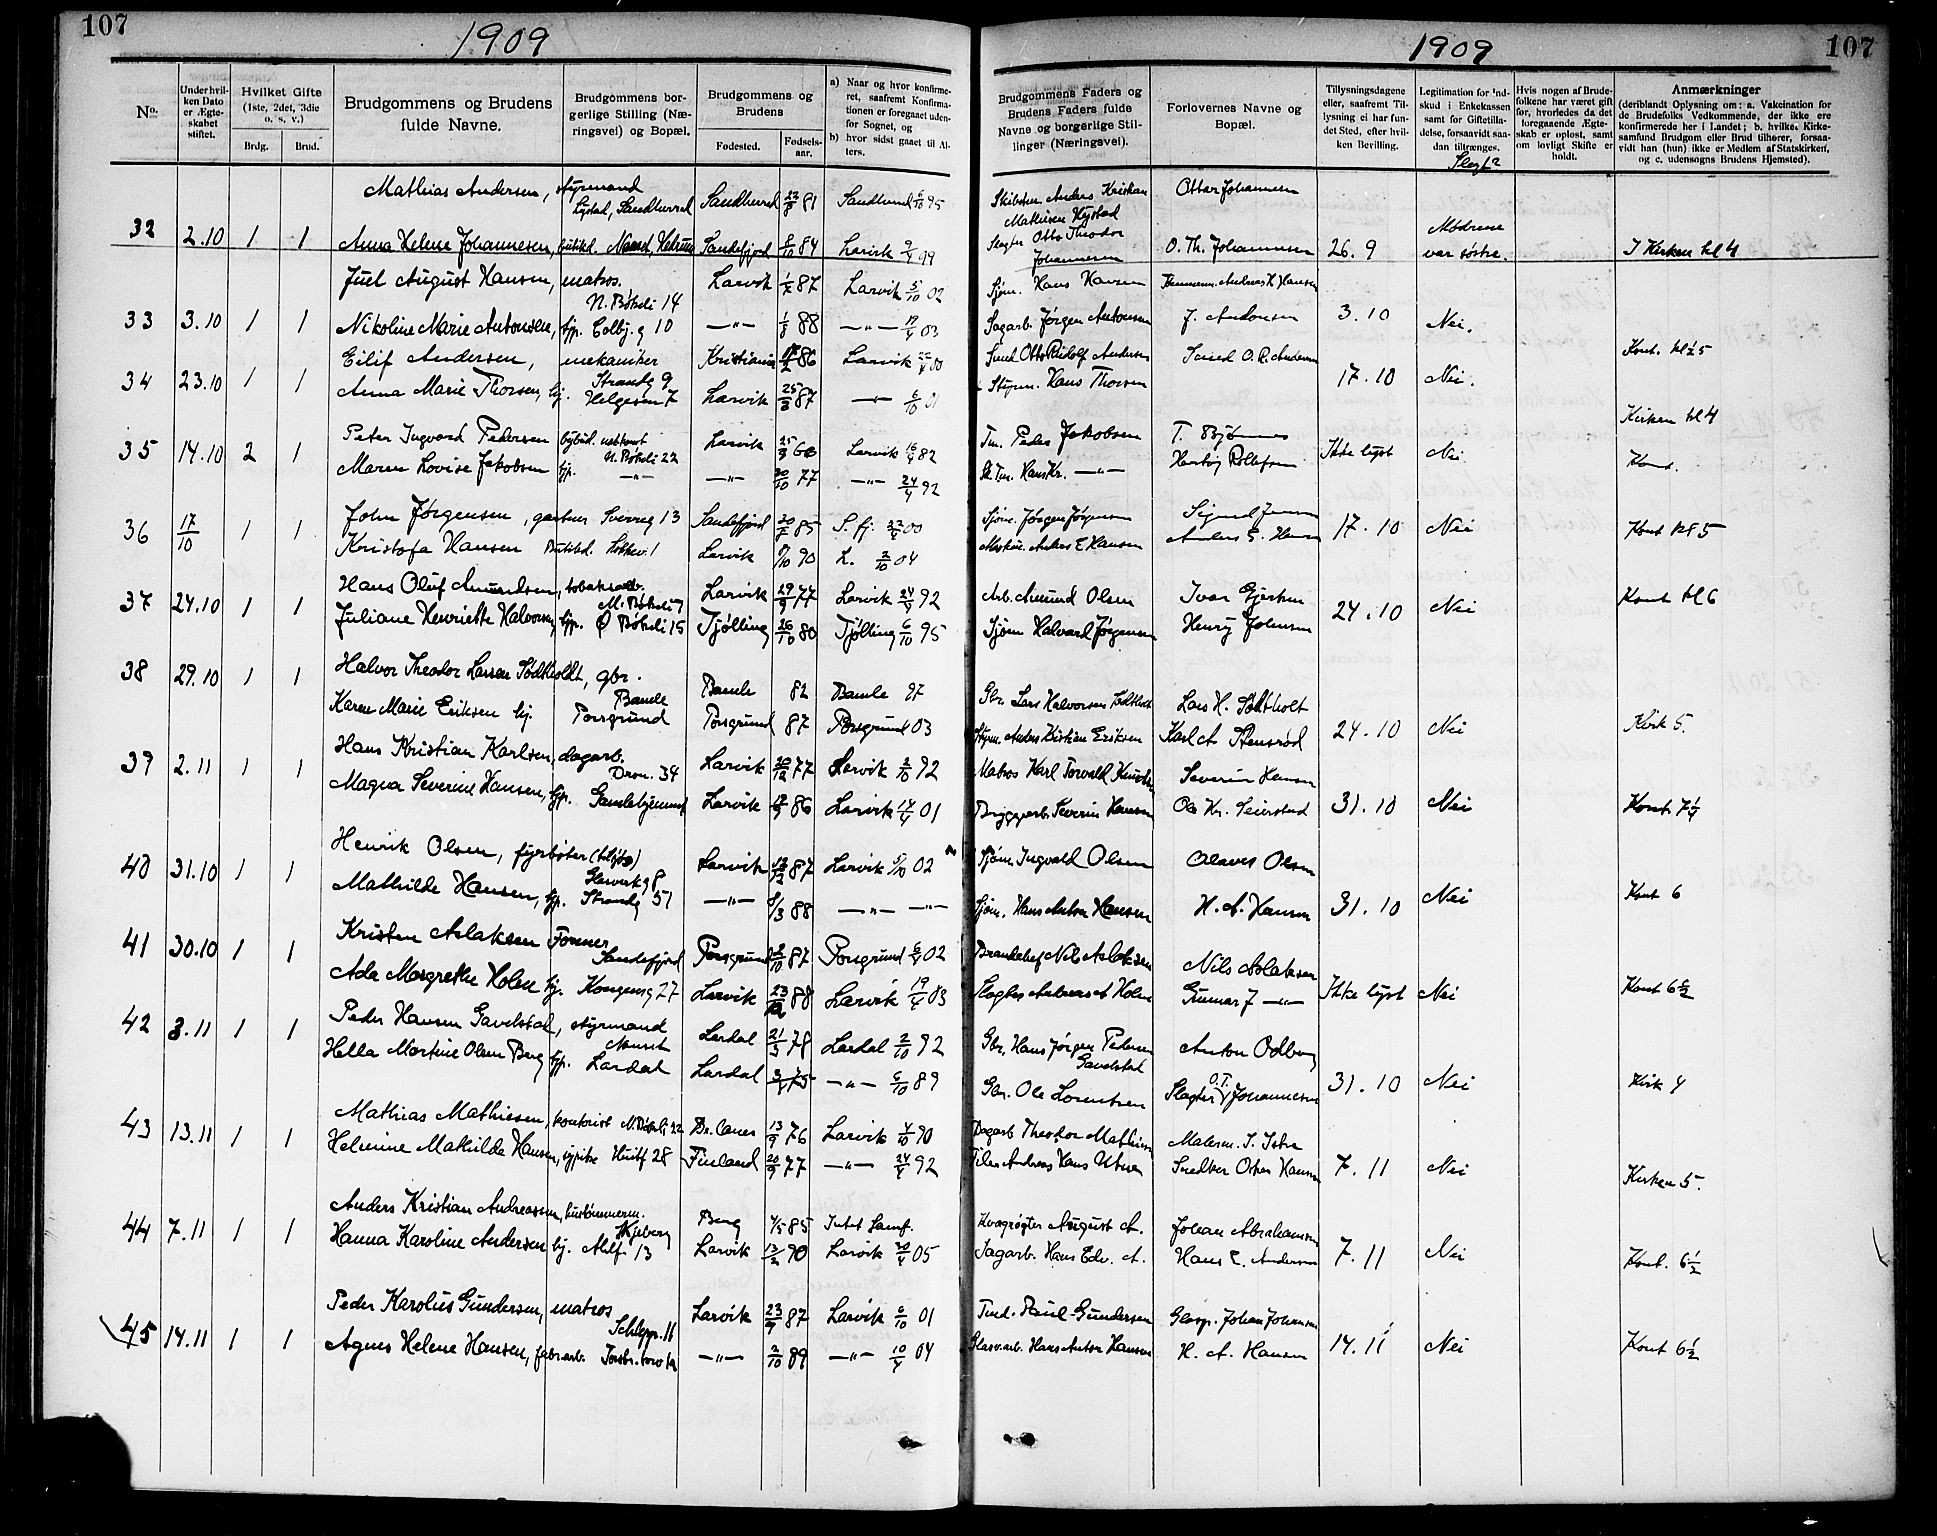 107
1909
1909
107
No.
Under hvilken Dato er Ægteskabet stiftet.
Hvilket Gifte (1ste, 2det, 3die o. s. v.)
Brdg.
Brud.
Brudgommens og Brudens fulde Navne.
Brudgommens borgerlige Stilling (Næringsvei) og Bopæl.
Brudgommens og Brudens
Fødested.
Fødselsaar.
a) Naar og hvor konfirmeret, saafremt Konfirmationen er foregaaet udenfor Sognet, og
b) hvor sidst gaaet til Alters.
Brudgommens Faders og Brudens Faders fulde Navne og borgerlige Stillinger (Næringsvei).
Forlovernes Navne og Bopæl.
Tillysningsdagene eller, saafremt Tillysning ei har fundet Sted, efter hvilken Bevilling.
Legitimation for Indskud i Enkekassen samt for Giftetilladelse, forsaavidt saadan tiltrænges.
Slegt?
Hvis nogen af Brudefolkene har været gift før, hvorledes da det foregaaende Ægteskab er opløst, samt om lovligt Skifte er holdt.
Anmærkninger
(deriblandt Oplysning om: a. Vakcination for de Brudefolks Vedkommende, der ikke ere konfirmerede her i Landet; b. hvilke Kirkesamfund Brudgom eller Brud tilhører, forsaavidt han (hun) ikke er Medlem af Statskirken, og c. udensogns Brudens Hjemsted).
Mathias Andersen, styrmand Sandherred 81 Sandherred 95 Anders Kristian Ottar Johannesen
32 2.10 1 1 Anna Helene Johannesen, Sandefjord 84 Larvik 99 Slagter Otto Theodor Johannesen O. Th. Johannesen 26.9 Mødrene var søstre. I Kirken kl 4
Juel August Hansen, matros. N. Bøkeli 14 Larvik 87 Larvik 5/10 02 Sjøm. Hans Hansen
33 3.10 1 1 Nikoline Marie Antonsen, Colbj.g 10 —"— 88 —"— 03 Sagarb. Jørgen Antonsen J. Antonsen 3.10 Nei. Kont. kl ½5
Eilif Andersen, mekaniker Strandg 9 Kristiania 86 Larvik 00 Smed Otto Rudolf Andersen Smed O. R. Andersen
34 23.10 1 1 Anna Marie Thorsen, hj. Helgesen 7 Larvik 87 —"— 6/10 01 Styrm. Hans Thorsen 17.10 Nei. Kirken kl 4
Peter Ingvard Pedersen N. Bøkeli 22 Larvik 60 Larvik 82 Tm. Peder Jakobsen
35 14.10 2 1 Maren Lovise Jakobsen —"— —"— 20/10 77 —"— 24/4 92 Hans Kr. —"— Ikke lyst Nei Kont.
John Jørgensen, gartner Sverreg 13 Sandefjord 85 S. fj. 00 Sjøm. Jørgen Jørgensen
36 17/10 1 1 Kristofa Hansen Larvik 90 L. 2/10 04 Anders E Hansen Anders E. Hansen 17.10 Nei Kont kl 5
Hans Oluf Amundsen, M. Bøkeli 7 Larvik 77 Larvik 24/4 92 Arb. Amund Olsen Ivar Gjertsen
37 24.10 1 1 Juliane Henriette Halvorsen, Ø Bøkeli 15 Tjølling 80 Tjølling 6/10 95 Sjøm Halvard Jørgensen Henry Johnsen 24.10 Nei Kont kl 6
Halvor Theodor Larsen Sødtholdt, gbr. Bamle Bamle 82 Bamle 97 Gbr. Lars Halvorsen Lars H. Södtholt
38 29.10 1 1 Karen Marie Eriksen hj. Porsgrund Porsgrund 87 Porsgrund 03 Styrm. Anders Kristian Eriksen Karl A Stensrød 24.10 Nei Kirk 5.
Hans Kristian Karlsen, dagarb. Dron. 34 Larvik 77 Larvik 2/10 92 Matros Karl Torvald Severin Hansen
39 2.11 1 1 Magna Severine Hansen, Larvik 86 Larvik 14/4 01 Bryggearb. Severin Hansen Ole Kr. Seierstad 31.10 Nei Kont 7¼
Henrik Olsen, fyrbøter Larvik 87 Larvik 5/10 02 Sjøm. Ingvald Olsen Olaves Olsen
40 31.10 1 1 Mathilde Hansen, Strandg 51 —"— 88 —"— —"— Sjøm. Hans Anton Hansen H. A. Hansen 31.10 Nei Kont 6
Kristen Aslaksen Former Sandefjord Porsgrund 87 Porsgrund 02 Nils Aslaksen Nils Aslaksen
41 30.10 1 1 Ada Margrethe Holm hj. Kongeng 27 Larvik 88 Larvik 19/4 03 Slagter Andreas A Holm Gunnar J —"— Ikke lyst Nei Kont 6½
Peder Hansen Gavelstad, styrmand Nanset Lardal 21/3 78 Lardal 2/10 92 Gbr. Hans Jørgen Pedersen Gavelstad Anton Odberg
42 3.11 1 1 Hella Martine Olsen Berg Lardal Lardal 75 —"— 6/10 89 Gbr. Ole Lorentsen Slagter O.T. Johannesen 31.10 Nei Kirk 4
Mathias Mathiesen, kontorist N. Bøkeli 22 13/9 76 Larvik 90 Dagarb Theodor Mathiesen Malerm. S. Istre
43 13.11 1 1 Helmine Mathilde Hansen, Huitf 28 Finland 20/9 77 —"— 24/4 92 Andreas Hans Snedker Oskar Hansen 7.11 Nei Kirken 5.
Anders Kristian Andreassen, Berg 4/5 85 August A. Johan Abrahamsen
44 7.11 1 1 Hanna Karoline Andersen hj. 13 Larvik 90 Larvik 05 Sagarb. Hans Edv. A. Hans E. Andersen 7.11 Nei Kont. 6½
Peder Karolius Gundersen, matros Larvik 23/9 87 Larvik 6/10 01 Paul Gundersen Johan Johansen
45 14.11 1 1 Agnes Helene Hansen, fabr.arb. —"— 2/10 89 —"— 10/4 04 Glasv.arb. Hans Anton Hansen H. A. Hansen 14.11 Nei Kont 6½